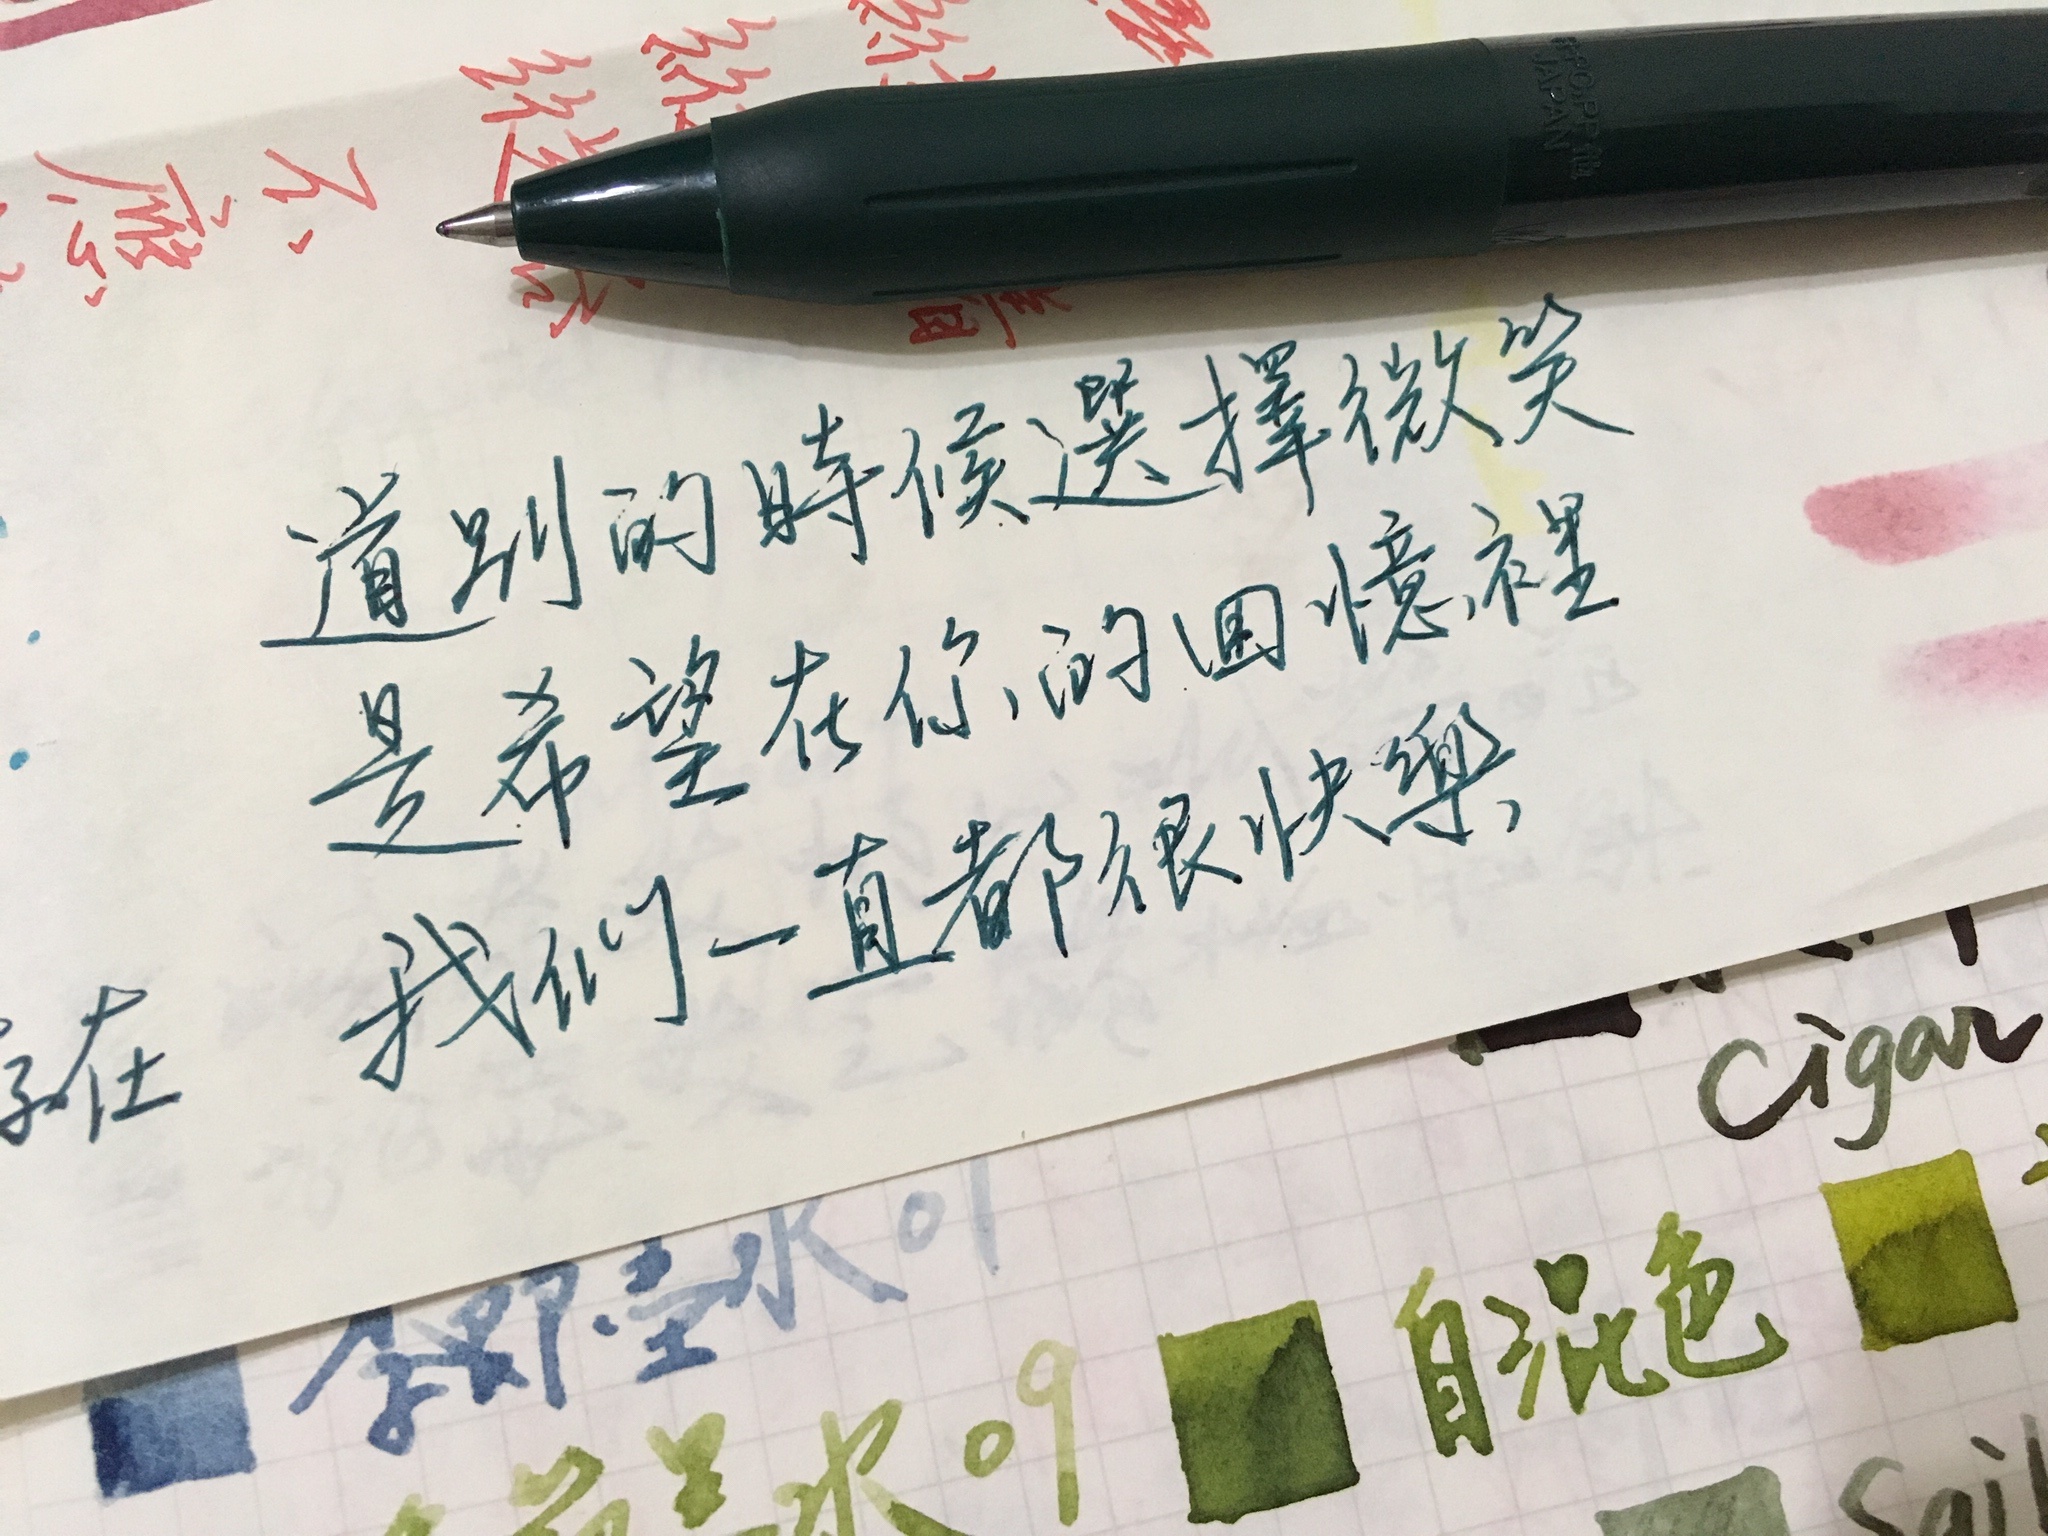 JAPAN
不
應
道別的時候選擇微笑
是希望在你的回憶裡
我們一直都很快樂
存在
Cigar
墨水 01
自混色
墨水 09
Sail